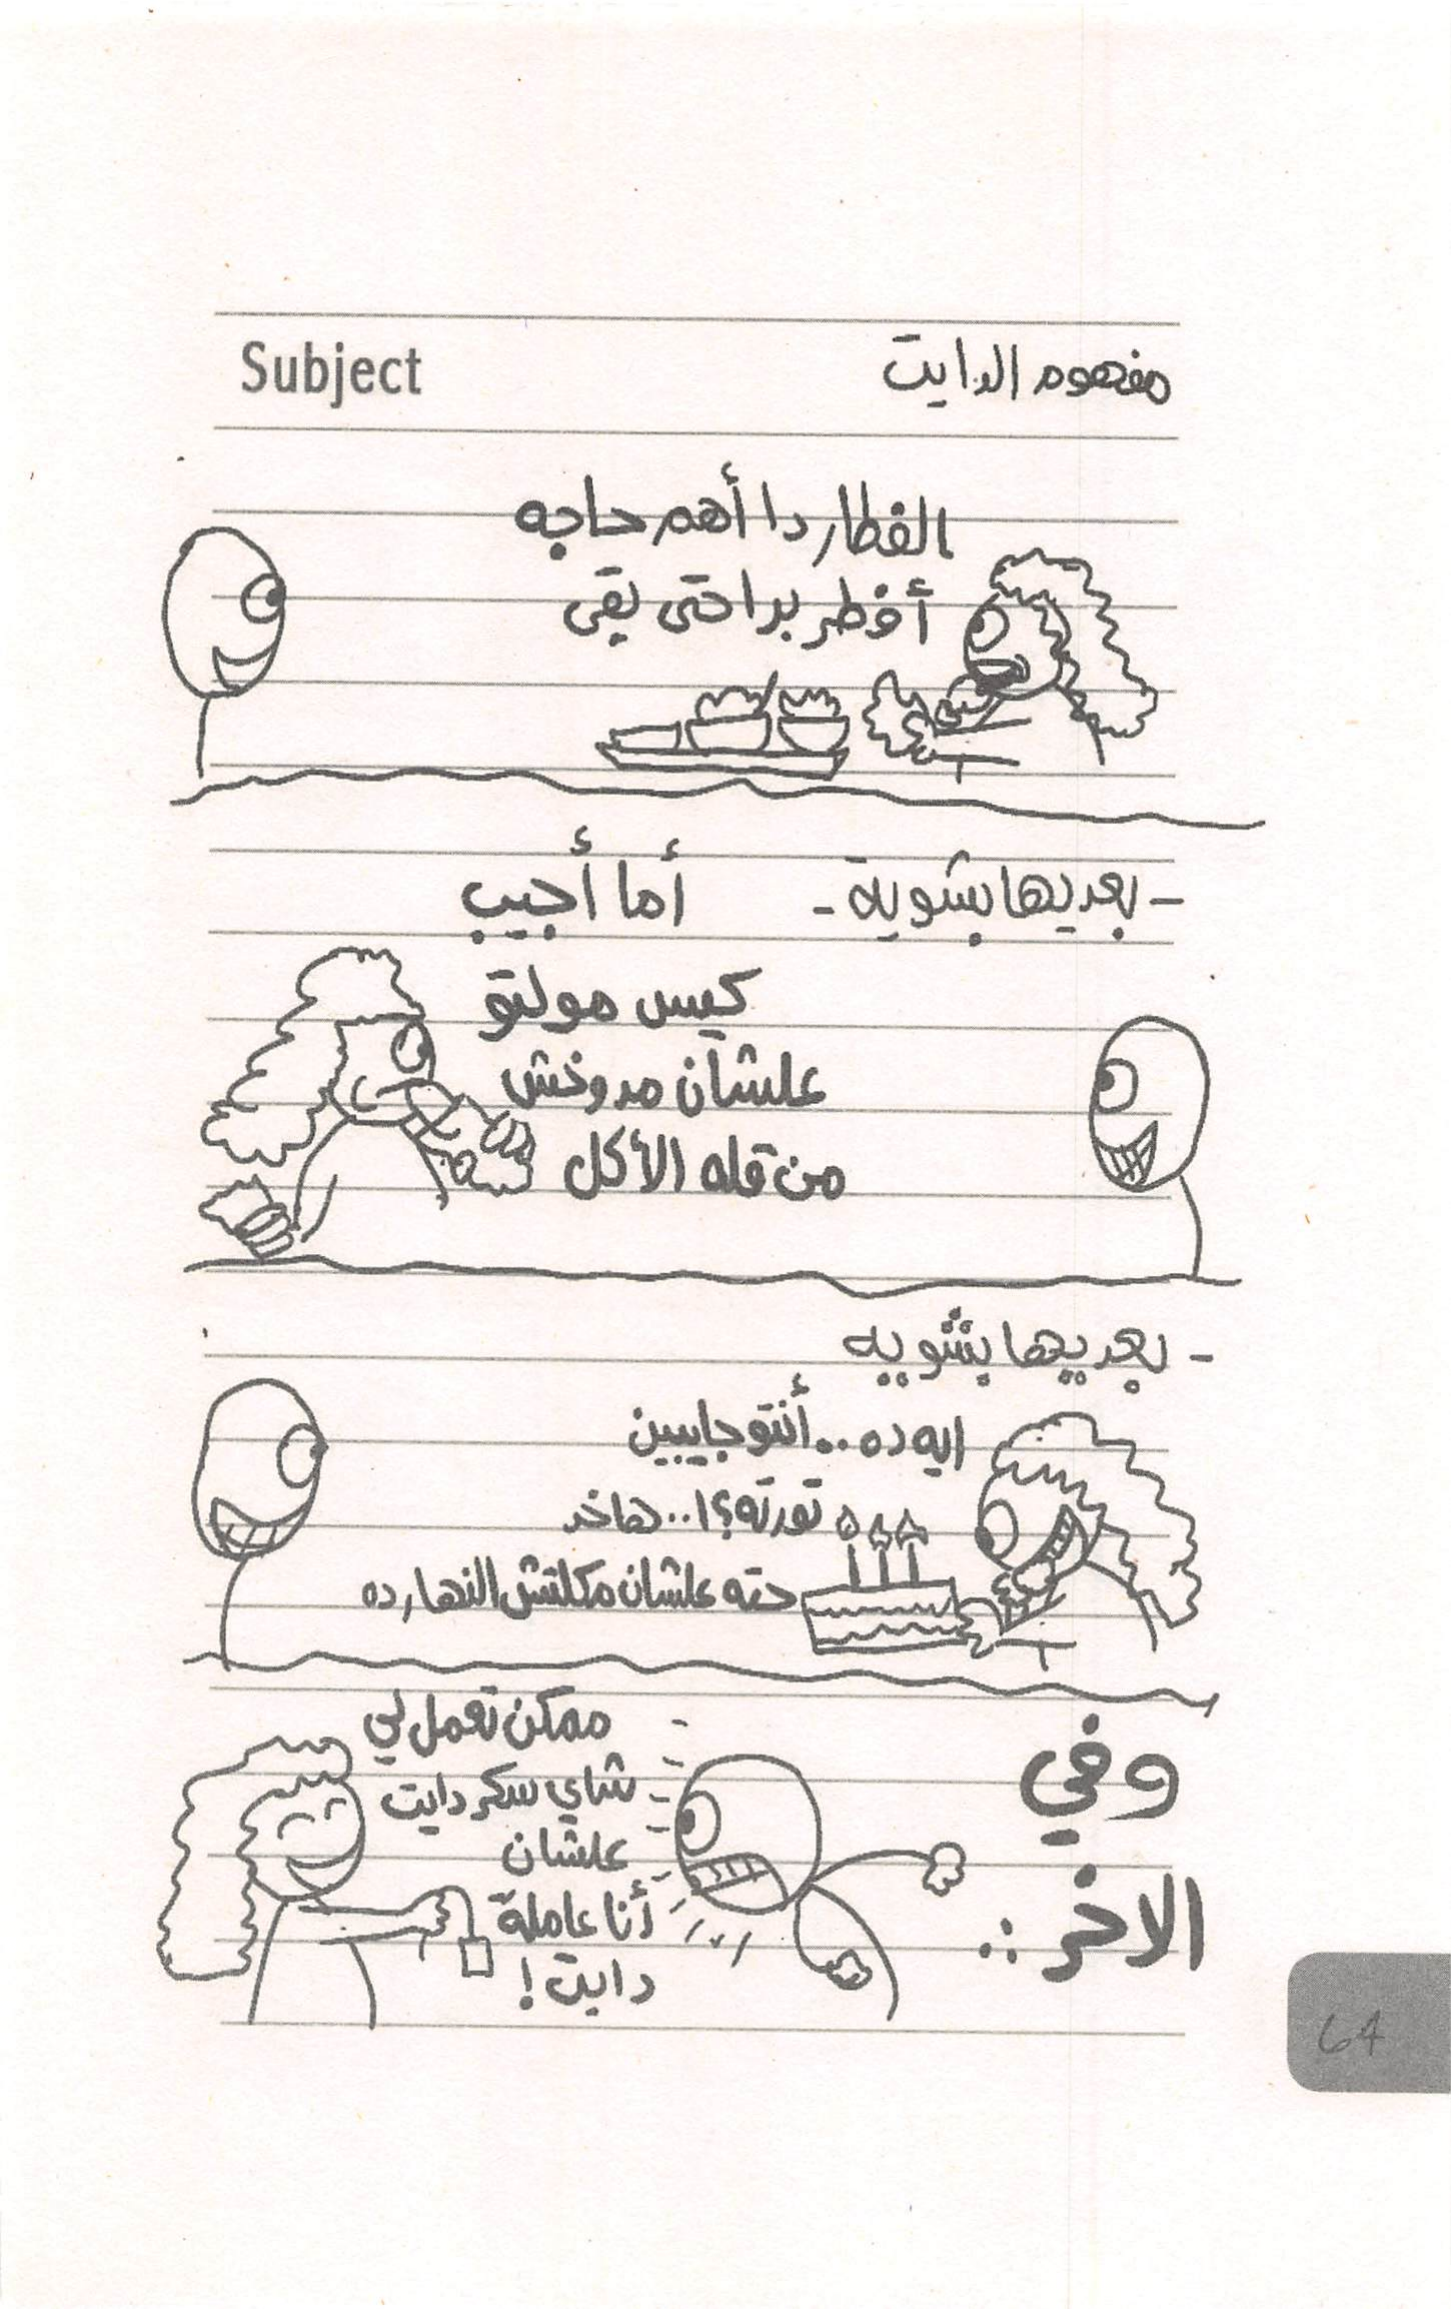 Subject
مفهوم الدايت
الفطار دا أهم حاجه
أفطر بدا حتى بقى
- بعديها بشوية -
أما أجيب
كيس مولتو
علشان مدوخش
من قله الأكل
- بعديها بشوييه
ايه ده .. أنتو جايبين
تورته؟! .. هاخد
حته علشان مكلتش النهارده
وفي
الاخر ..
ممكن تعمل لي
شاي سكر دايت
علشان
أنا عاملة
دايت !
64